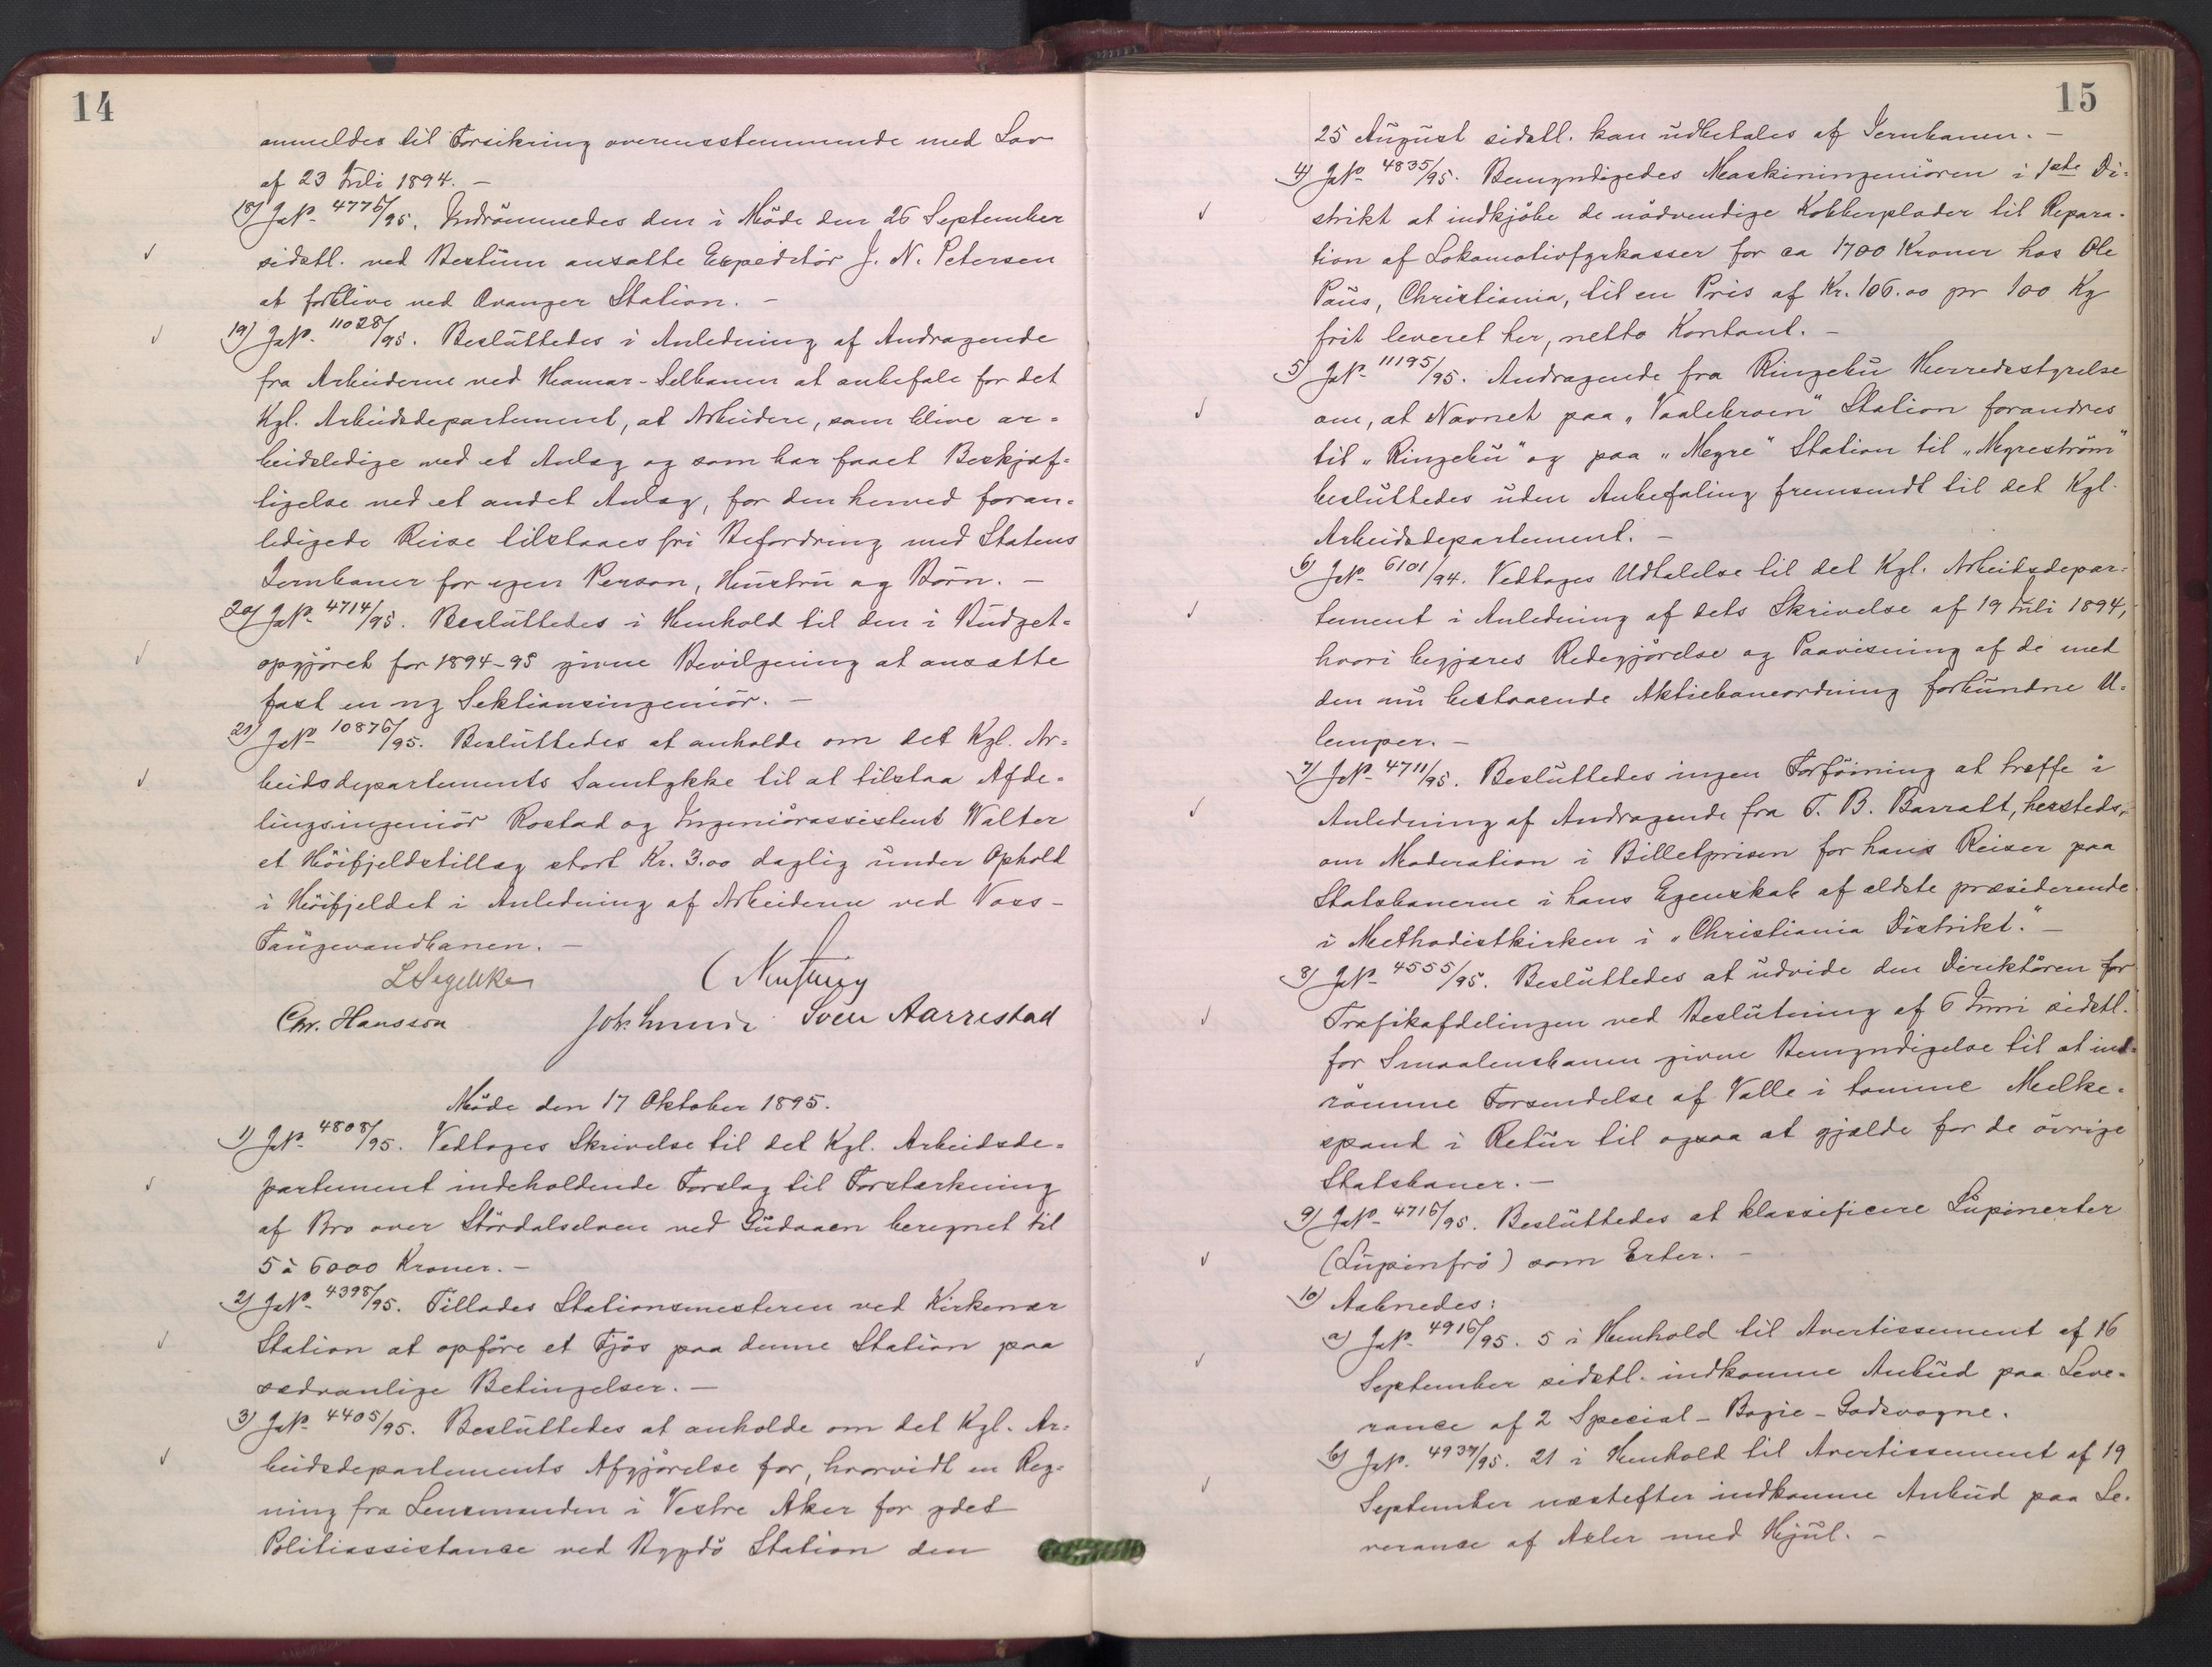 14
anmeldes til Forsikring overensstemmende med Lov
af 23 Juli 1894. –
18) JNo 4776/95. Indrömmedes den i Möde den 26 September
sidstl. ved Bestum ansatte Expeditör J. N. Petersen
at forblive ved Ovanger Station. –
19) JNo 11028/95. Besluttedes i Anledning af Andragende
fra Arbeiderne ved Hamar-Selbanen at anbefale for det
Kgl. Arbeidsdepartement, at Arbeidere, som blive ar=
beidsledige ved et Anlæg og som har faaet Beskjæf=
tigelse ved et andet Anlæg, for den herved foran=
ledigede Reise tilstaaes fri Befordring med Statens
Jernbaner for egen Person, Hustru og Börn. –
20) JNo 4714/95. Besluttedes i Henhold til den i Budget=
opgjöret for 1894-95 givne Bevilgning at ansætte
fast en ny Sektionsingeniör. –
21) JNo 10876/95. Besluttedes at anholde om det Kgl. Ar=
beidsdepartements Samtykke til at tilstaa Afde=
lingsingeniör Rostad og Ingeniörassistent Walter
et Höifjeldstillæg stort Kr. 3.00 daglig under Ophold
i Höifjeldet i Anledning af Arbeiderne ved Voss-
Taugevandbanen. –
Chr. Hansson Sven Aarrestad
Möde den 17 Oktober 1895.
1) JNo 4808/95. Vedtoges Skrivelse til det Kgl. Arbeidsde=
partement indeholdende Forslag til Forstærkning
af Bro over Stördalselven ved Gudaaen beregnet til
5 à 6000 Kroner. –
2) JNo 4398/95. Tillodes Stationsmesteren ved Kirkenær
Station at opföre et Fjös paa denne Station paa
sædvanlige Betingelser. –
3) JNo 4405/95. Besluttedes at anholde om det Kgl. Ar=
beidsdepartements Afgjörelse for, hvorvidt en Reg=
ning fra Lensmanden i Vestre Aker for ydet
Politiassistance ved Bygdö Station den
15
25 August sidstl. kan udbetales af Jernbanen. –
4) JNo 4835/95. Bemyndigedes Maskiningeniören i 1ste Di=
strikt at indkjöbe de nödvendige Kobberplader til Repara=
tion af Lokomotivfyrkasser for ca 1700 Kroner hos Ole
Paus, Christiania, til en Pris af Kr. 106.00 pr 100 Kg
frit leveret her, netto Kontant. –
5) JNo 11195/95. Andragende fra Ringebu Herredsstyrelse
om, at Navnet paa „Vaalebroen“ Station forandres
til „Ringebu“ og paa „Megre“ Station til „Megreström“
besluttedes uden Anbefaling fremsendt til det Kgl.
Arbeidsdepartement. –
6) JNo 6101/94. Vedtoges Udtalelse til det Kgl. Arbeidsdepar=
tement i Anledning af dets Skrivelse af 19 Juli 1894,
hvori begjæres Redegjörelse og Paavisning af de med
den nu bestaaende Aktiebaneordning forbundne U=
lemper. –
7) JNo 4711/95. Besluttedes ingen Forföining at træffe i
Anledning af Andragende fra T. B. Barratt, hersteds,
om Moderation i Billetprisen for hans Reiser paa
Statsbanerne i hans Egenskab af ældste præsiderende
i Methodistkirken i „Christiania Distrikt.“ –
8) JNo 4555/95. Besluttedes at udvide den Direktören for
Trafikafdelingen ved Beslutning af 6 Juni sidstl.
for Smaalensbanen givne Bemyndigelse til at ind=
römme Forsendelse af Valle i tomme Melke=
spand i Retur til ogsaa at gjælde for de övrige
Statsbaner. –
9) JNo 4716/95. Besluttedes at klassificere Lupinerter
(Lupinfrö) som Erter. –
10) Aabnedes:
a) JNo 4916/95. 5 i Henhold til Avertissement af 16
September sidstl. indkomne Anbud paa Leve=
rance af 2 Special-Bogie-Godsvogne.
b) JNo 4937/95. 21 i Henhold til Avertissement af 19
September næstefter indkomne Anbud paa Le=
verance af Axler med Hjul. –